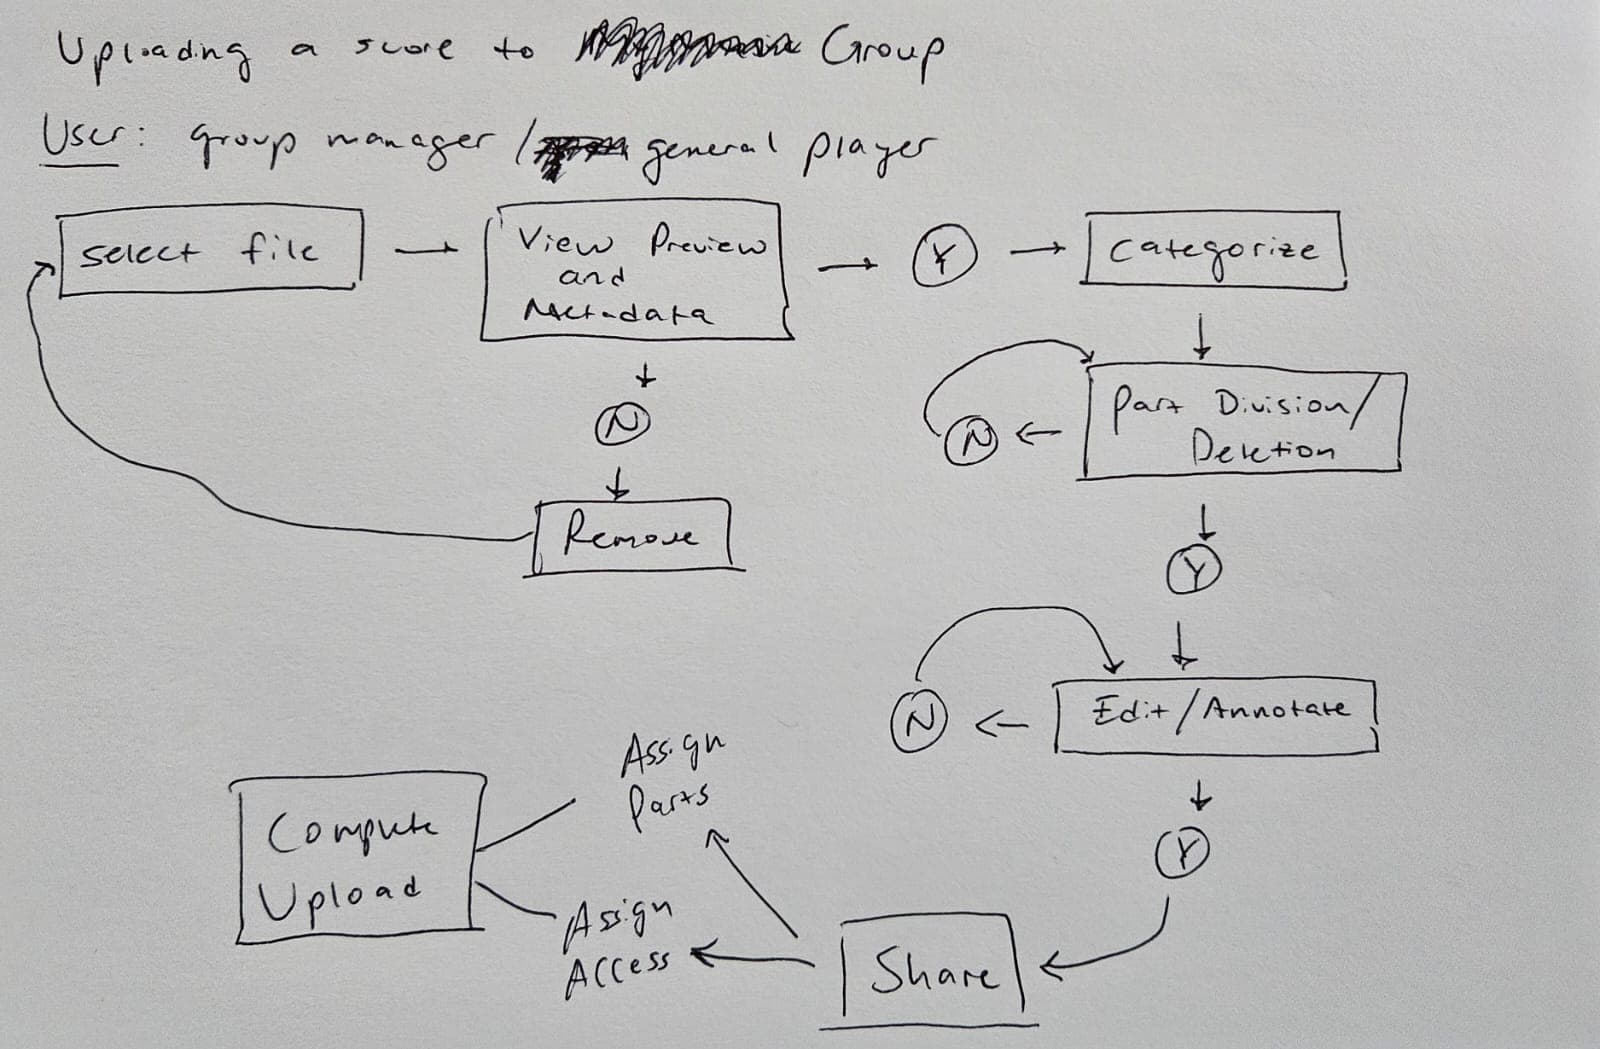 Uploading a score to Group
User: group manager / general player
select file
View Preview
and
Metadata
Y
Categorize
N
Remove
Part Division/
Deletion
N
Y
Edit/Annotate
N
Y
Share
Assign
Parts
Assign
Access
Compute
Upload